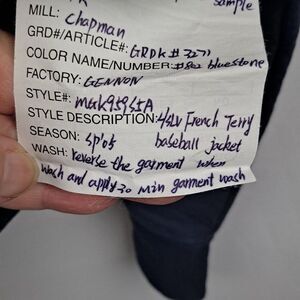 sample
MILL: Chapman
GRD#/ARTICLE#: GRDK # 3271
COLOR NAME/NUMBER: #802 bluestone
FACTORY: GENNON
STYLE#:
STYLE DESCRIPTION: French Terry
SEASON: SP'05 baseball jacket
WASH: reverse the garment when
wach and apply 30 min garment wash